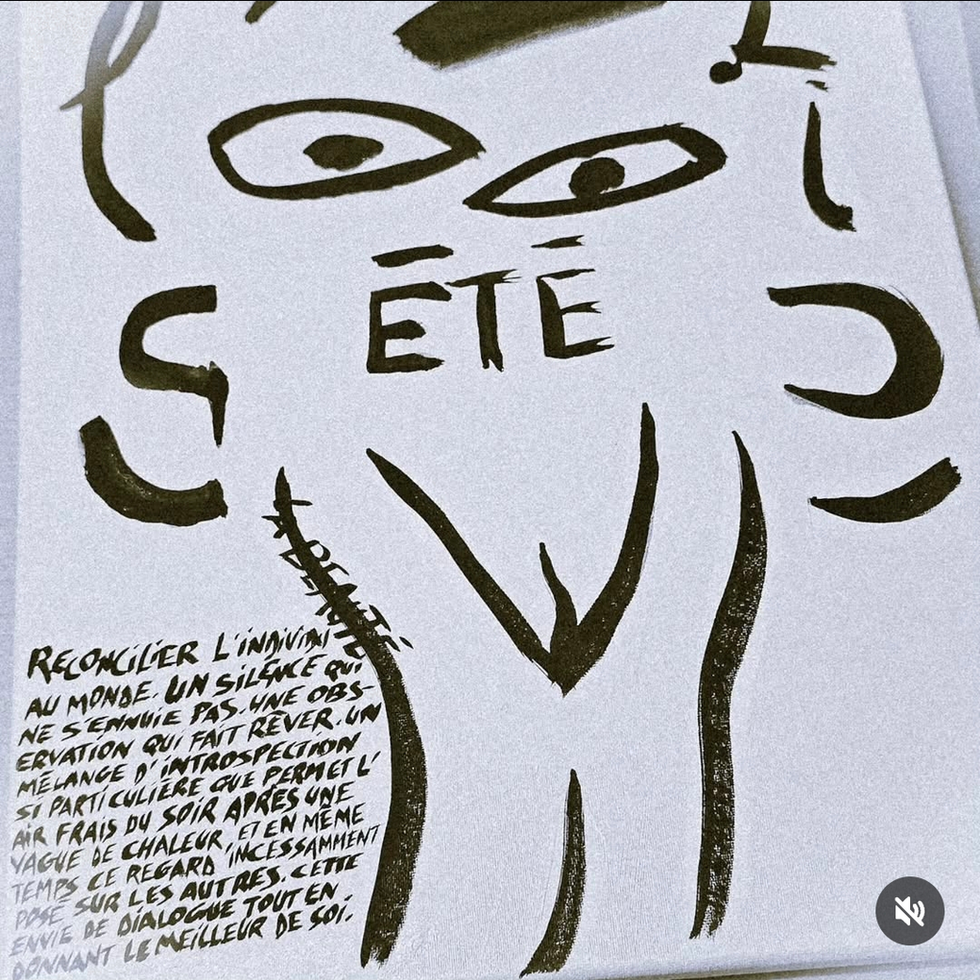 ÉTÉ
LA BEAUTÉ
RECONCILIER L'INDIVIDU
AU MONDE. UN SILENCE QUI
NE S'ENNUIE PAS. UNE OBS-
ERVATION QUI FAIT RÊVER. UN
MÉLANGE D'INTROSPECTION
SI PARTICULIÈRE QUE PERMET L'
AIR FRAIS DU SOIR APRÈS UNE
VAGUE DE CHALEUR, ET EN MÊME
TEMPS CE REGARD INCESSAMMENT
POSÉ SUR LES AUTRES. CETTE
ENVIE DE DIALOGUE TOUT EN
DONNANT LE MEILLEUR DE SOI.